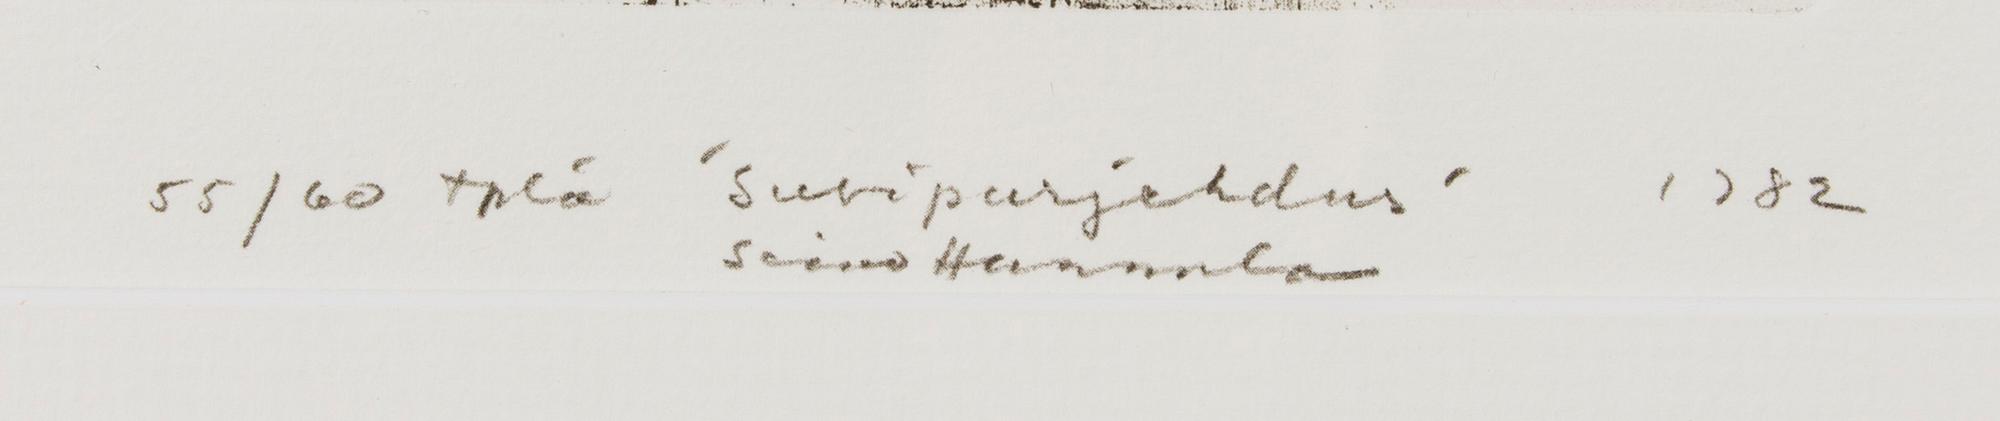 55/60 tplä 'Suvipurjehdus' 1982
Seino Hannula